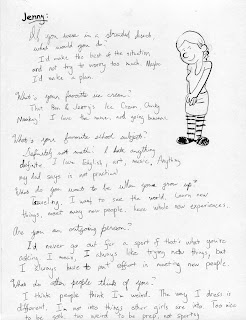 Jenny:
If you were in a stranded island,
what would you do?
I'd make the best of the situation
and not try to worry too much. Maybe
I'd make a plan.
What's your favorite ice cream?
That Ben & Jerry's Ice Cream Chunky
Monkey! I love the name, and going bananas
What's your favorite school subject?
Definitely not math! I hate anything
definite. I love English, art, music. Anything
my dad says is not practical
What do you want to be when you grow up?
Traveling. I want to see the world. Learn new
things, meet many new people, have whole new experiences.
Are you an outgoing person?
I'd never go out for a sport if that's what you're
asking I mean, I always like trying new things, but
I always have to put effort in meeting new people.
What do other people think of you?
I think people think I'm weird. The way I dress is
different. I'm not into things other girls are into. Too nice
to be goth, too weird to be prep, not sporty